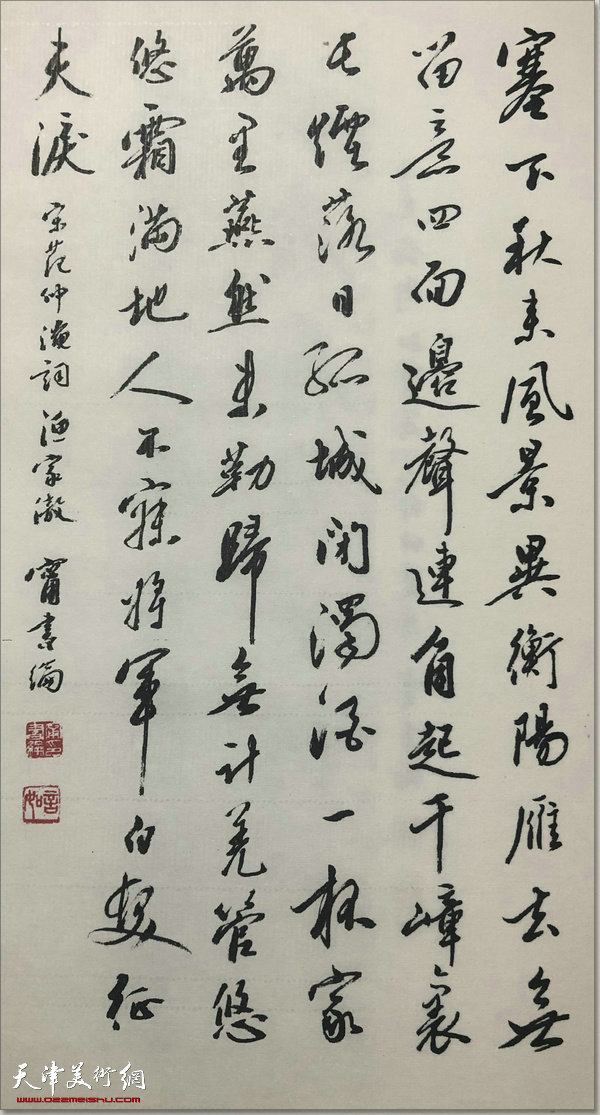 塞下秋来風景異衡陽雁去無
留意四面邊聲連角起千嶂裏
长煙落日孤城闭濁酒一杯家
萬里燕然未勒歸無計羌管悠
悠霜满地人不寐将軍白髮征
夫淚
宋范仲淹詞渔家傲 甯書綸
天津美術網
www.022meishu.com